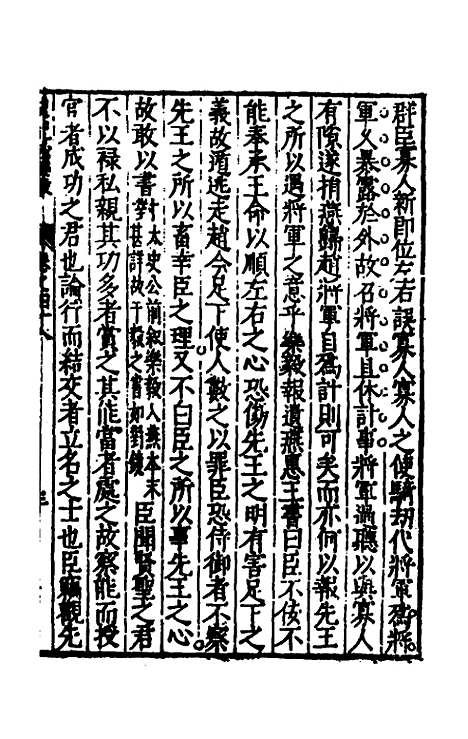 群臣寡人新即位左右誤寡人寡人之使騎劫代將軍爲將
軍久暴露於外故召將軍且休計事將軍過聽以與寡人
有隙遂捐燕歸趙將軍自爲計則可矣而亦何以報先王
之所以遇將軍之意乎樂毅報遺燕惠王書曰臣不佞不
能奉承王命以順左右之心恐傷先王之明有害足下之
義故遁逃走趙今足下使人數之以罪臣恐侍御者不察
先王之所以畜幸臣之理又不白臣之所以事先王之心
故敢以書對太史公前叙樂毅入燕本末甚詳故于毅之書如對鏡臣聞賢聖之君
不以禄私親其功多者賞之其能當者處之故察能而授
官者成功之君也論行而結交者立名之士也臣竊觀先
卷之四十八
三